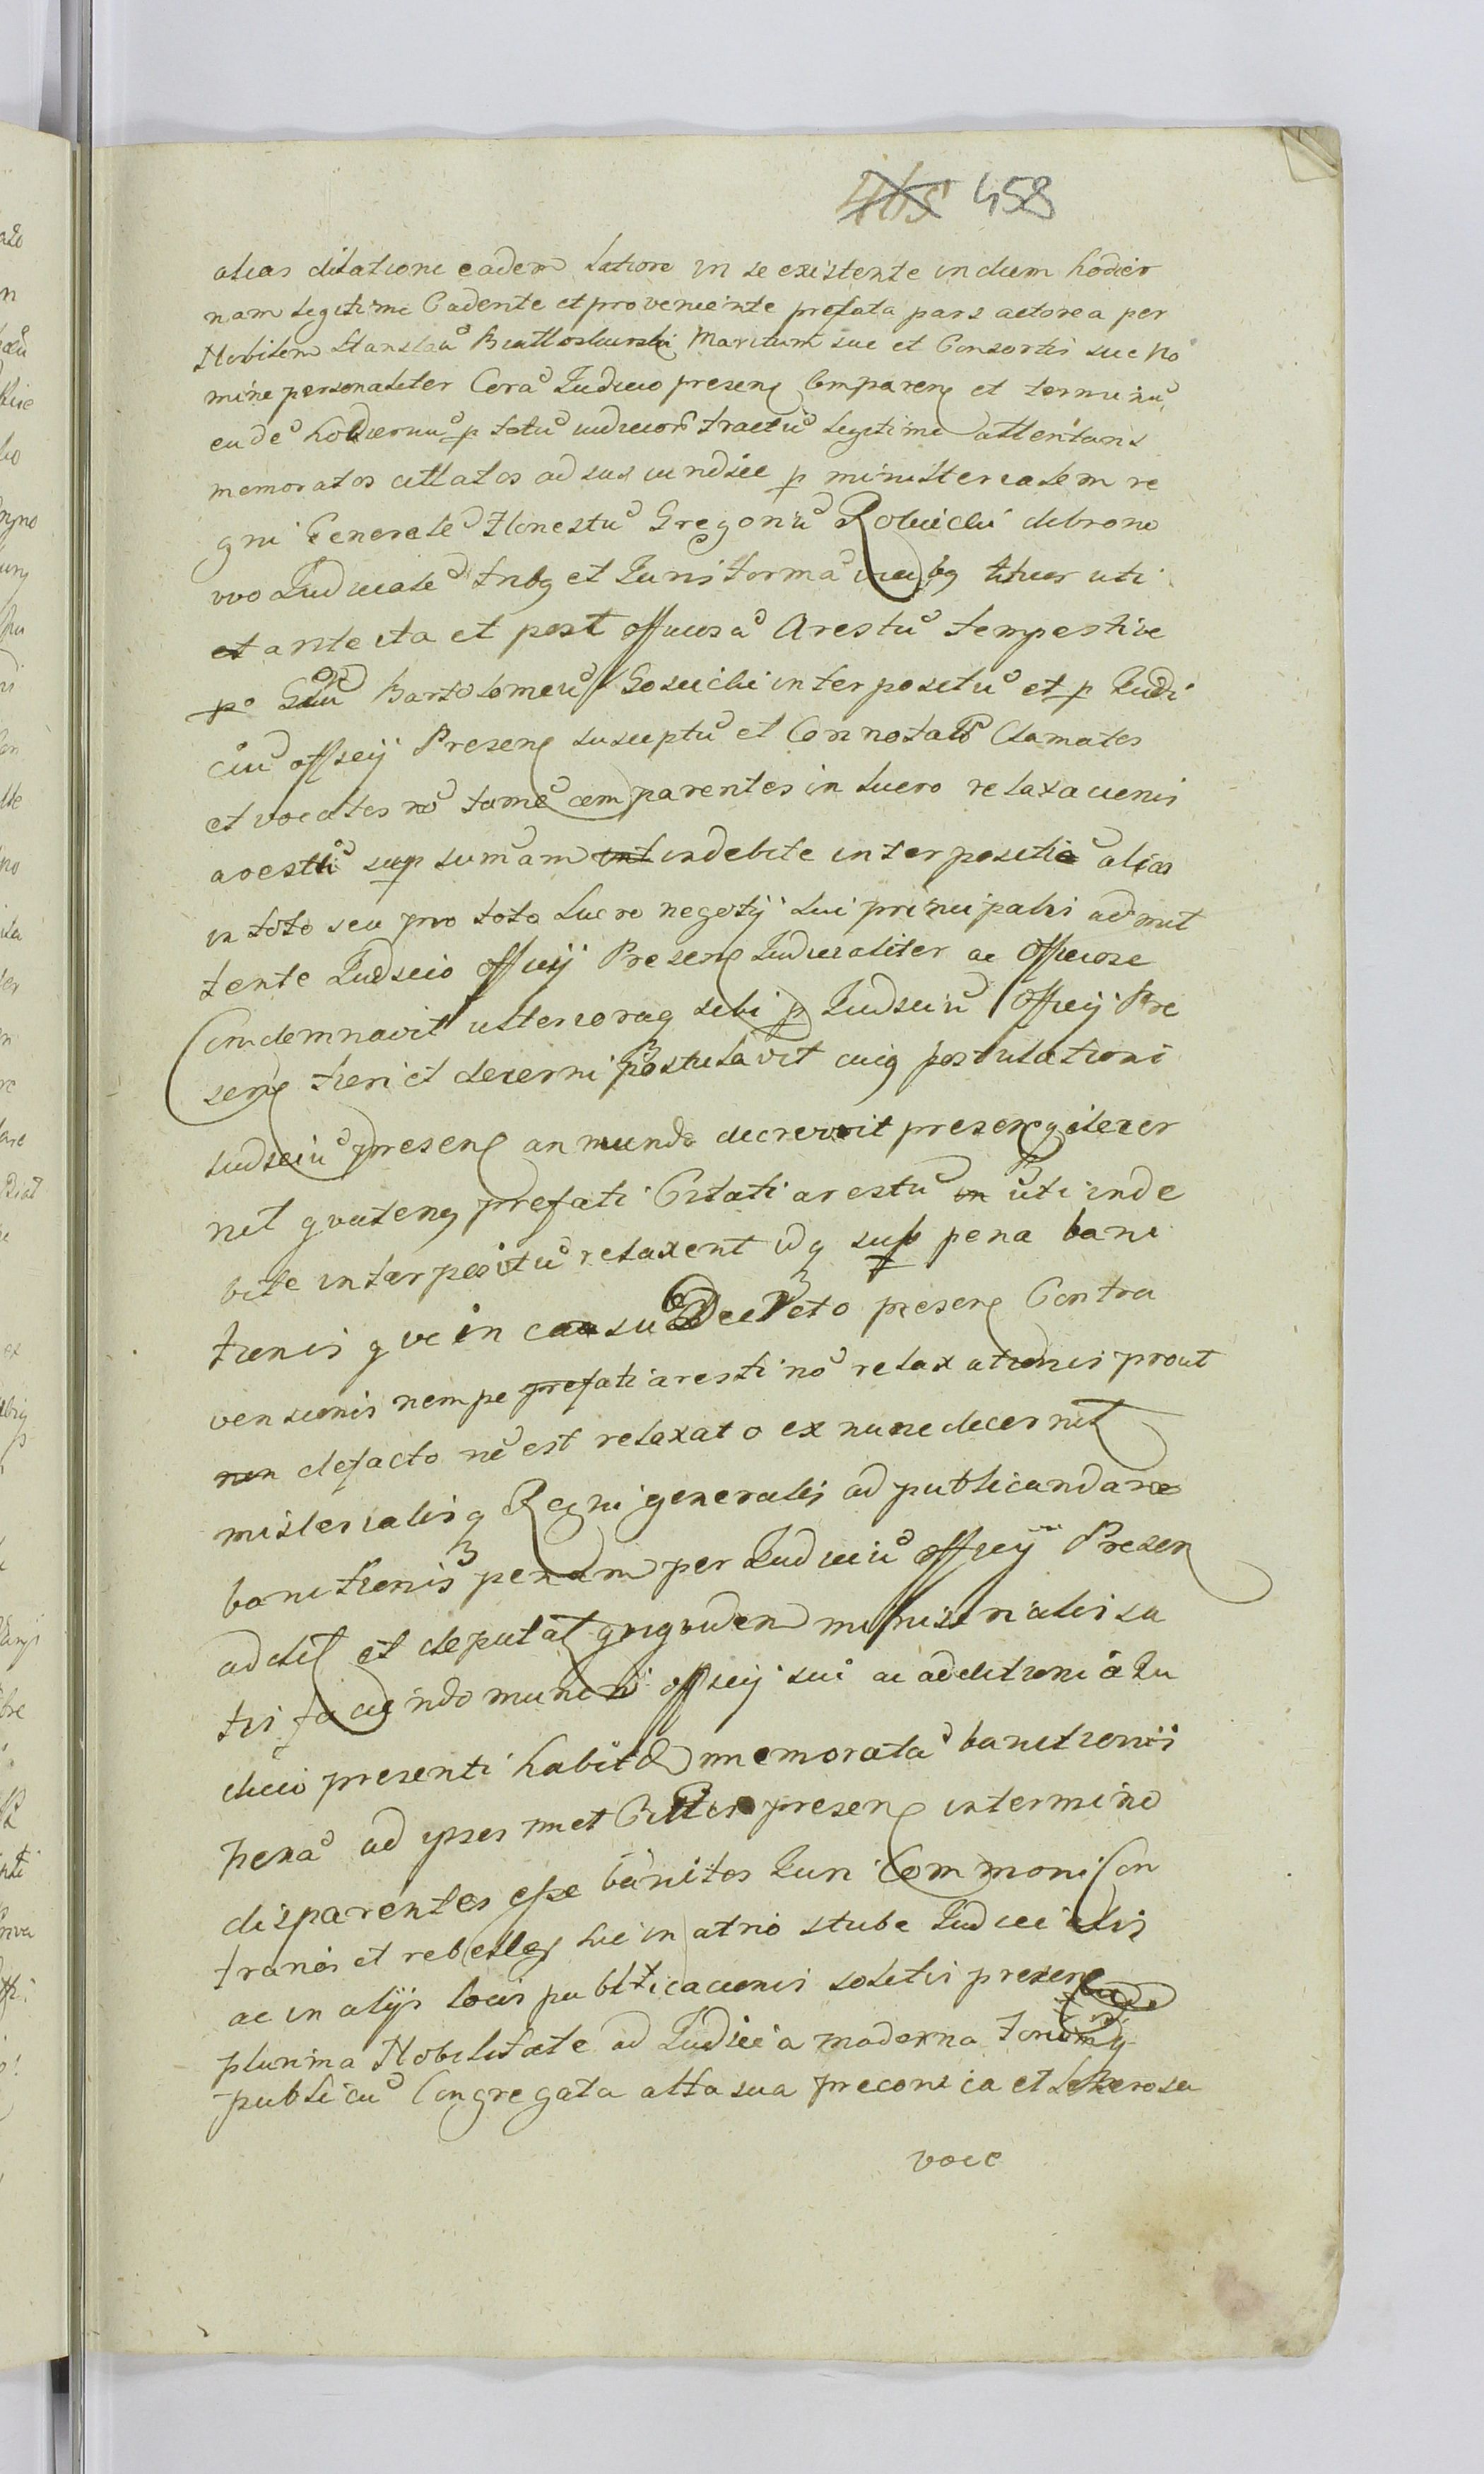 465 458
alias dilatione eadem latiore in se existente in diem hodier
nam legitime Cadente et proveniente prefata pars actorea per
Nobilem Stanslaũ Maritum sue et Consortis sue no
mine personaliter Corã Iudicio presenꝭ Comparenꝭ et terminũ
eundẽ hodiernũ p totũ iudiciorũ tractũ legitime attentans
memoratos citatos ad sus p ministerialem re
gni Generalẽ Honestũ Gregoriũ debrono
vvo Iudicialẽ tribꝫ et Iuris formã vicibꝫ uti
et ante ita et post officiosũ Arestũ tempestive
p Bartolomeũ Gosuchi interpositũ et p Iudi
ciũ officij Presenꝭ susceptũ et Connotatũ Clamatos
et vocatos nõ tamẽ comparentes in lucro relaxacionis
arestũ sup sumam int indebite interpositi alias
in toto seu pro toto lucro negotij sui principalis admit
tente Iudicio officij Presenꝭ Iudicialiter ac Officiose
Condemnavit ulterioraq sibi p Iudiciũ Officij Pre
senꝭ fieri et decerni postulavit cuiq postulationi
Iudiciũ presenꝭ annuendo decrevit presenꝭq decer
nit qvatenꝫ prefati Citati arestũ in uti inde
bite interpositũ relaxent idq sup pena bani
tionis qve in casu Decreto presenꝭ Contra
ventionis nempe prefati aresti nõ relaxationis prout
non defacto nõ est relaxato ex nunc decernit
misterialisq Regni generalis ad publicandam
banitionis penam per Iudiciũ officij Presen
addit et deputat qviqvidem ministerialis sa
tis faciendo muneri officij sui ac additioni a Iu
dicio presenti habite memoratã banitionis
penã ad ipsos met presenꝭ in termino
disparentes esse banitos Iuri Commoni Con
trarios et rebelles hic in atrio stube Iudicialis
ac in alijs locis publicacionis solitis presen
plurima Nobilitate ad Iudicia moderna
publicũ Congregata alta sua preconica et
voce